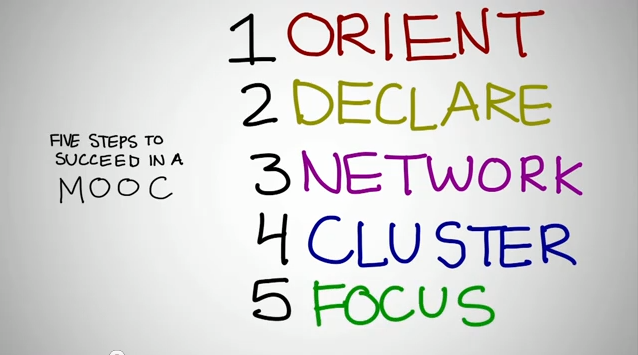 FIVE STEPS TO
SUCCEED IN A
MOOC
1 ORIENT
2 DECLARE
3 NETWORK
4 CLUSTER
5 FOCUS